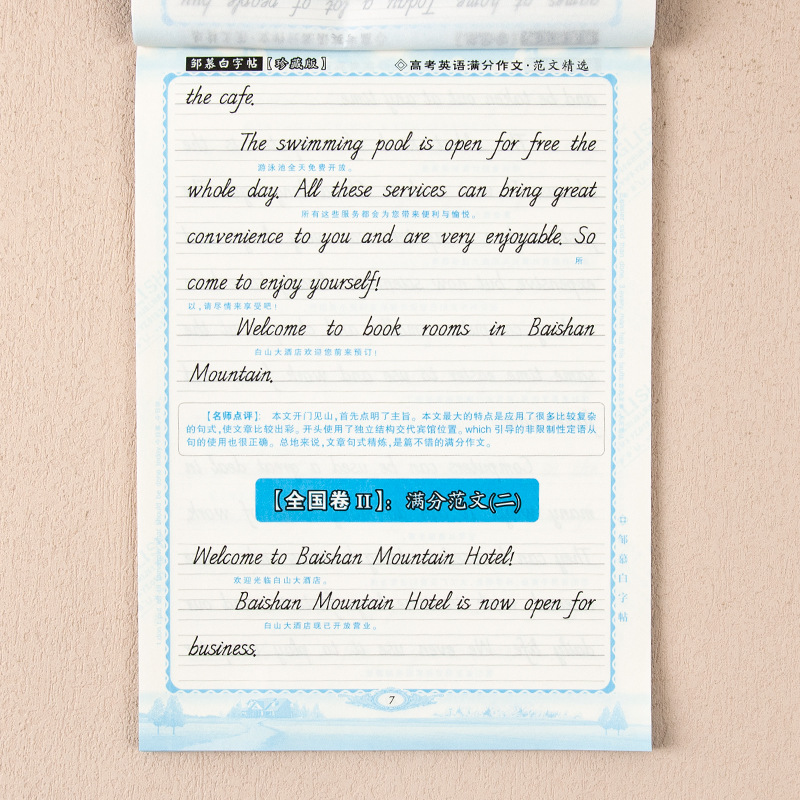 games at home. Today a lot of people buy
邹慕白字帖【珍藏版】 ◇高考英语满分作文·范文精选
the cafe.
The swimming pool is open for free the
游泳池全天免费开放。
whole day. All these services can bring great
所有这些服务都会为您带来便利与愉悦。
convenience to you and are very enjoyable. So
所
come to enjoy yourself!
以,请尽情来享受吧!
Welcome to book rooms in Baishan
白山大酒店欢迎您前来预订!
Mountain.
【名师点评】: 本文开门见山,首先点明了主旨。本文最大的特点是应用了很多比较复杂
的句式,使文章比较出彩。开头使用了独立结构交代宾馆位置。which 引导的非限制性定语从
句的使用也很正确。总地来说,文章句式精炼,是篇不错的满分作文。
【全国卷 II】:满分范文(二)
Welcome to Baishan Mountain Hotel!
欢迎光临白山大酒店。
Baishan Mountain Hotel is now open for
白山大酒店现已开放营业。
business.
7